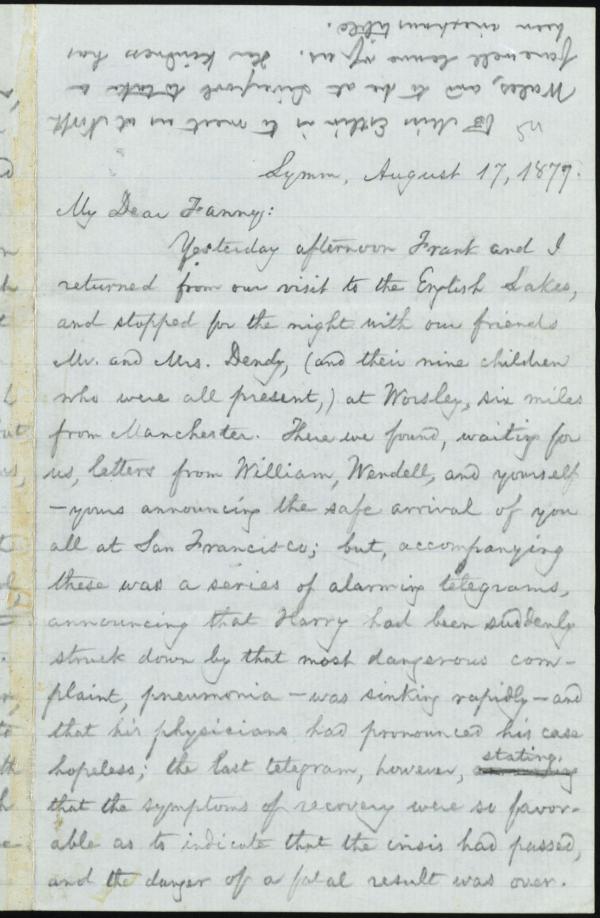 Miss Estlin is to meet us at North
Wales, and to be at Liverpool to take a
farewell leave of us. Her kindness has
been inexhaustible.
Lymm, August 17, 1877.
My Dear Fanny:
Yesterday afternoon Frank and I
returned from our visit to the English Lakes,
and stopped for the night with our friends
Mr. and Mrs. Dendy, (and their nine children
who were all present,) at Worsley, six miles
from Manchester. There we found, waiting for
us, letters from William, Wendell, and yourself
— yours announcing the safe arrival of you
all at San Francisco; but, accompanying
these was a series of alarming telegrams,
announcing that Harry had been suddenly
struck down by that most dangerous com-
plaint, pneumonia — was sinking rapidly — and
that his physicians had pronounced his case
hopeless; the last telegram, however, stating
that the symptoms of recovery were so favor-
able as to indicate that the crisis had passed,
and the danger of a fatal result was over.